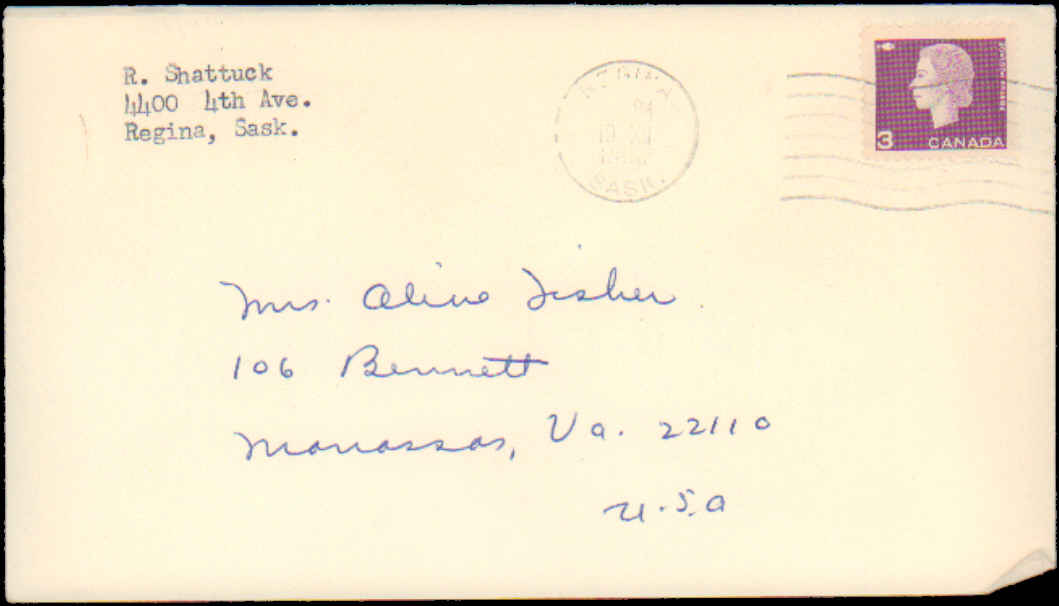 R. Shattuck
4400 4th Ave.
Regina, Sask.
REGINA
SASK.
3
CANADA
Mrs. Aline Fisher
106 Bennett
Manassas, Va. 22110
U.S.A